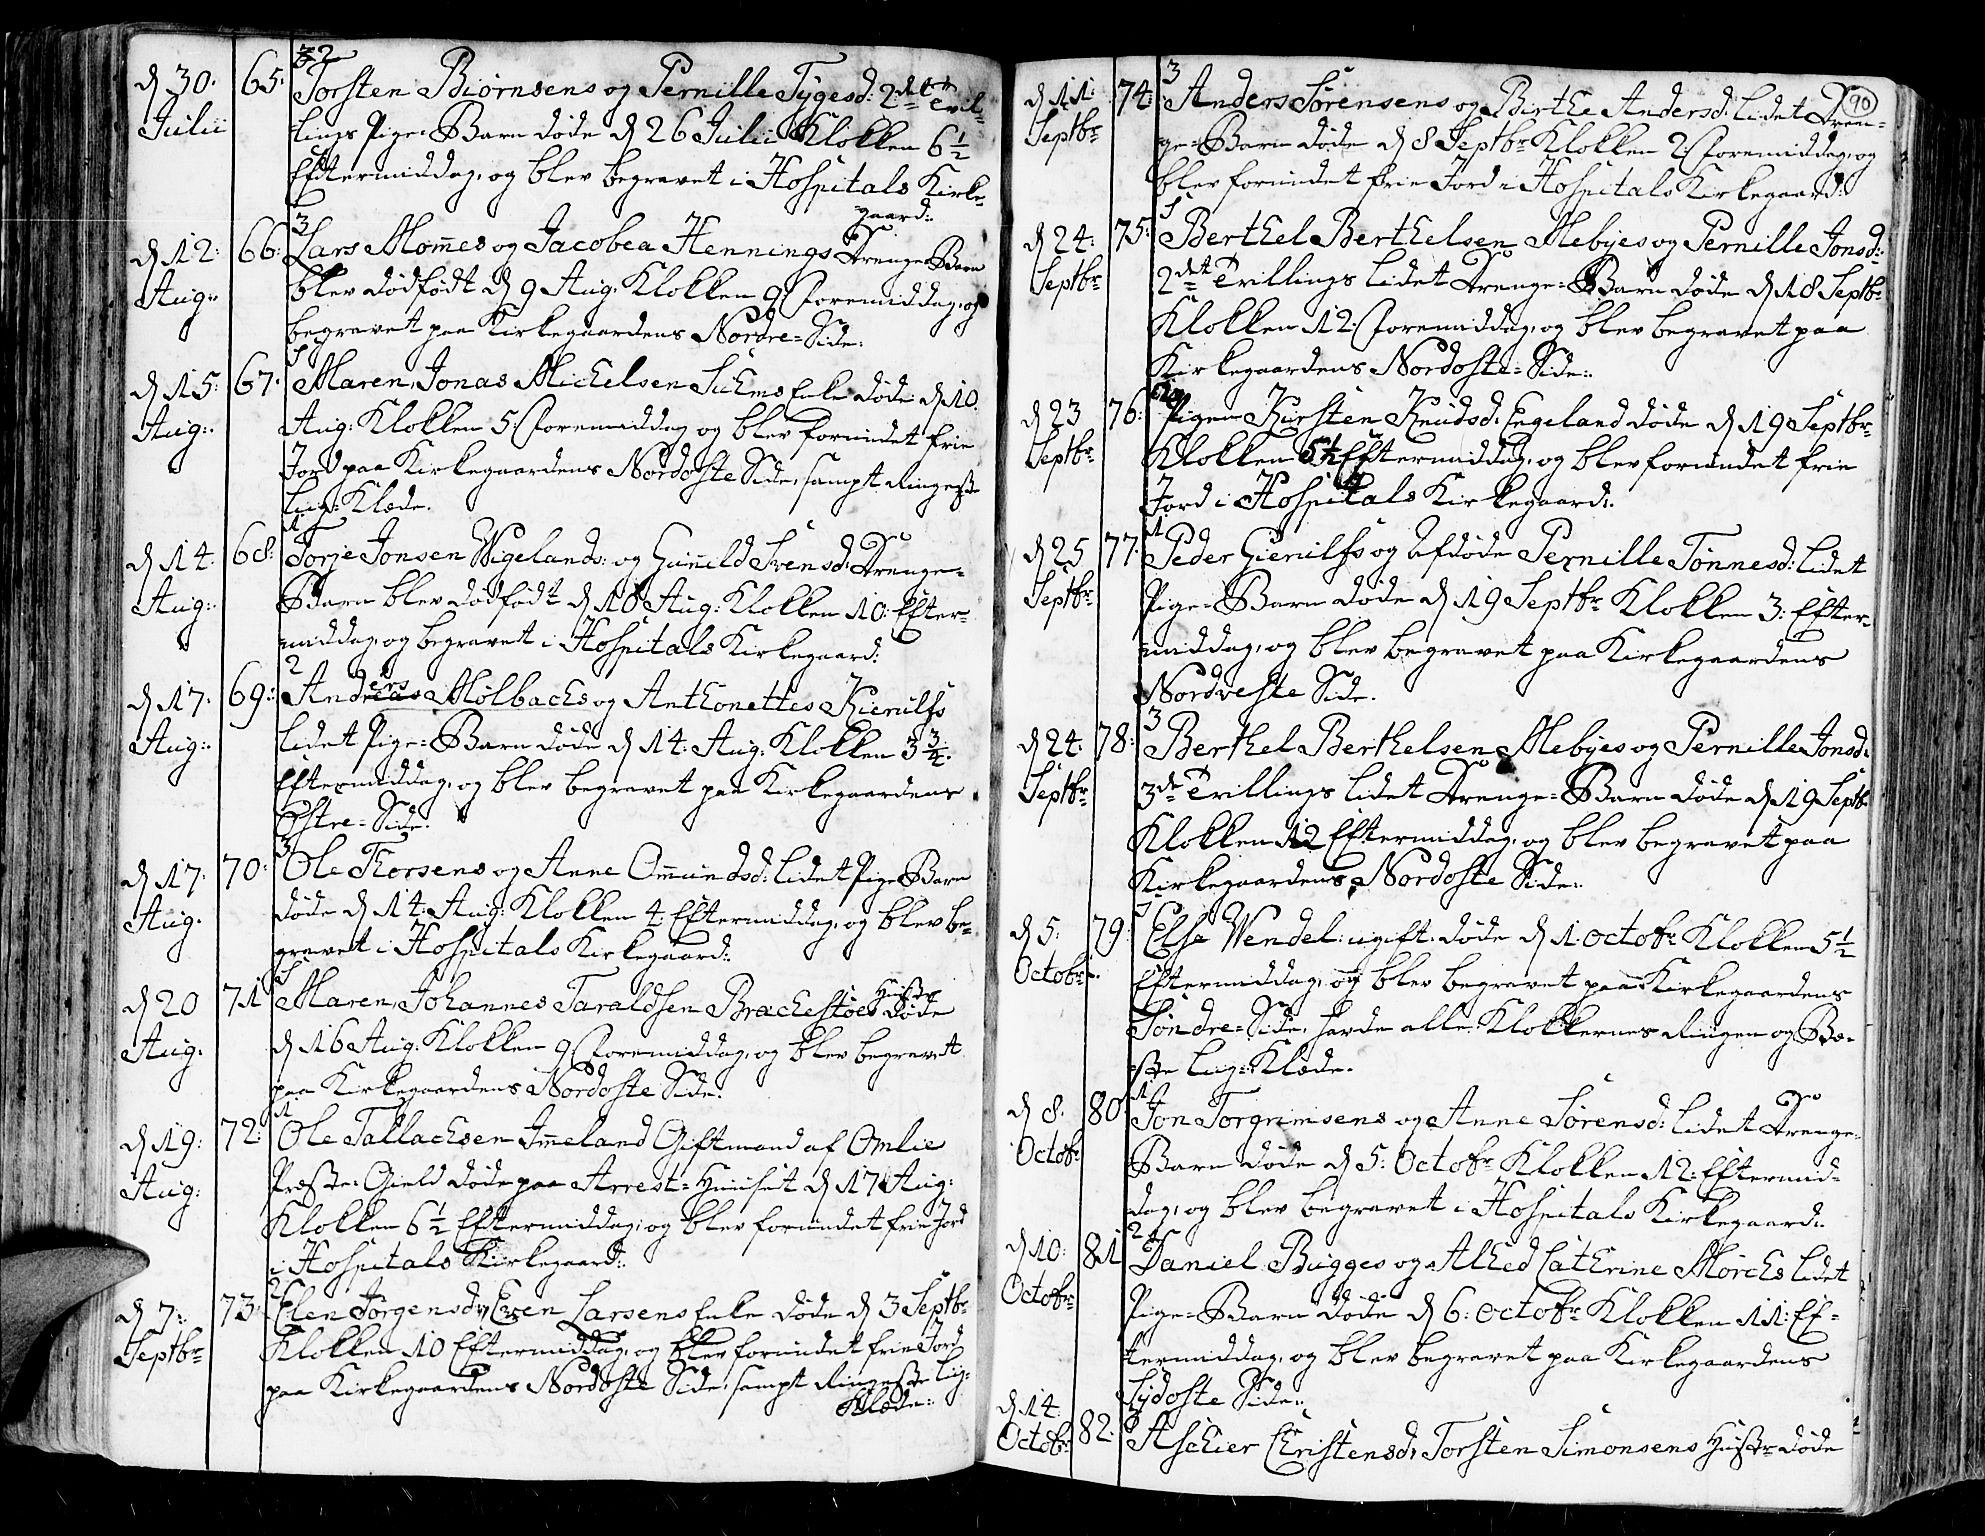 d 30. Julii 65: 32
Torsten Biørnsens og Pernille Tygesd: 2det Tvil-
lings Pige-Barn døde d 26 Julii Klokken 6½
Eftermiddag, og blev begravet i Hospitals Kirke-
gaard:
d 12: Aug: 66: 3
Lars Mom̄es og Jacobea Hennings Drenge Barn
blev dødfødt d 9 Aug: Klokken 9 Formiddag, og
begravet paa Kirkegaardens Nordre-Side:
d 15: Aug: 67.
Maren, Jonas Michelsen Enke døde d 10
Aug: Klokken 5 Formiddag og blev forundet frie
Jord paa Kirkegaardens Nordoste Side, sampt Ringeste
Liig-Klæde.
d 14: Aug: 68: 1
Torje Jonsen Wigelands: og Gun̄ild Svensd: Drenge-
Barn blev dødfødt d 10 Aug: Klokken 10: Efter-
middag, og begravet i Hospitals Kirkegaard:
d 17: Aug: 69: 2
Anders Mølbachs og Anthonettes Kierulfs
lidet Pige-Barn døde d 14: Aug: Klokken 3¾
Eftermiddag, og blev begravet paa Kirkegaardens
Østre-Side.
d 17: Aug. 70: 3
Ole Thorsens og Anne Om̄undsd: lidet Pige Barn
døde d 14: Aug: Klokken 4: Eftermiddag, og blev be-
gravet i Hospitals Kirkegaard:
d 20 Aug. 71
Maren, Johannes Taraldsen Brachestøes Hustr døde
d 16 Aug: Klokken 9 Formiddag, og blev begravet
paa Kirkegaardens Nordoste Side.
d 19: Aug: 72: 1
Ole Tallachsen Im̄eland Giftmand af Omlie
Præste-Gield døde paa Arrest-Huuset d 17 Aug:
Klokken 6½ Eftermiddag, og blev forundet frie Jord
i Hospitals Kirkegaard:
d 7: Septbr 73: 2
Elen Jørgensd, Even Larsens Enke døde d 3 Septbr
Klokken 10 Eftermiddag, og blev forundet frie Jord
paa Kirkegaardens Nordoste Side, sampt Ringeste Liig-
Klæde:
90
d 11: Septbr 74: 3
Anders Sørensens og Birthe Andersd: lidet Dren-
ge-Barn døde d 8 Septbr Klokken 2: Formiddag, og
blev forundet frie Jord i Hospitals Kirkegaard:
d 24: Septbr 75:
Berthel Berthelsen Mebyes og Pernille Jonsd:
2det Trillings lidet Drenge-Barn døde d 18 Septbr
Klokken 12: Formiddag, og blev begravet paa
Kirkegaardens Nordoste-Side:
d 23 Septbr 76:
Pigen Kirsten Knudsd: Engeland døde d 19 Septbr
Klokken 5½ Eftermiddag, og blev forundet frie
Jord i Hospitals Kirkegaard:
d 25 Septbr 77: 1
Peder Gierulfs og Afdøde Pernille Tønnesd: lidet
Pige-Barn døde d 19 Septbr Klokken 3: Efter-
middag, og blev begravet paa Kirkegaardens
Nordveste Side.
d 24: Septbr 78: 3
Berthel Berthelsen Mebyes og Pernille Jonsd:
3de Trillings lidet Drenge-Barn døde d 19 Septb:
Klokken 12 Eftermiddag, og blev begravet paa
Kirkegaardens Nordoste Side:
d 5: Octobr: 79:
Else Wendel: ugift: døde d 1 Octobr Klokken 5½
Eftermiddag, og blev begravet paa Kirkegaardens
Søndre-Side, havde alle Klokkernes Ringen og Be-
ste Liig-Klæde.
d 8: Octobr 80 1
Jon Torgrimsens og Anne Sørensd: lidet Drenge-
Barn døde d 5: Octobr Klokken 12: Eftermid-
dag, og blev begravet i Hospitals Kirkegaard:
d 10: Octobr 81 2
Daniel Bugges og Alhed Cathrine Mørchs lidet
Pige-Barn døde d 6: Octobr Klokken 11: Ef-
termiddag, og blev begravet paa Kirkegaardens
Sydoste Side:
d 14 Octobr 82:
Aschier Christensd, Torsten Simonsens Hustr døde